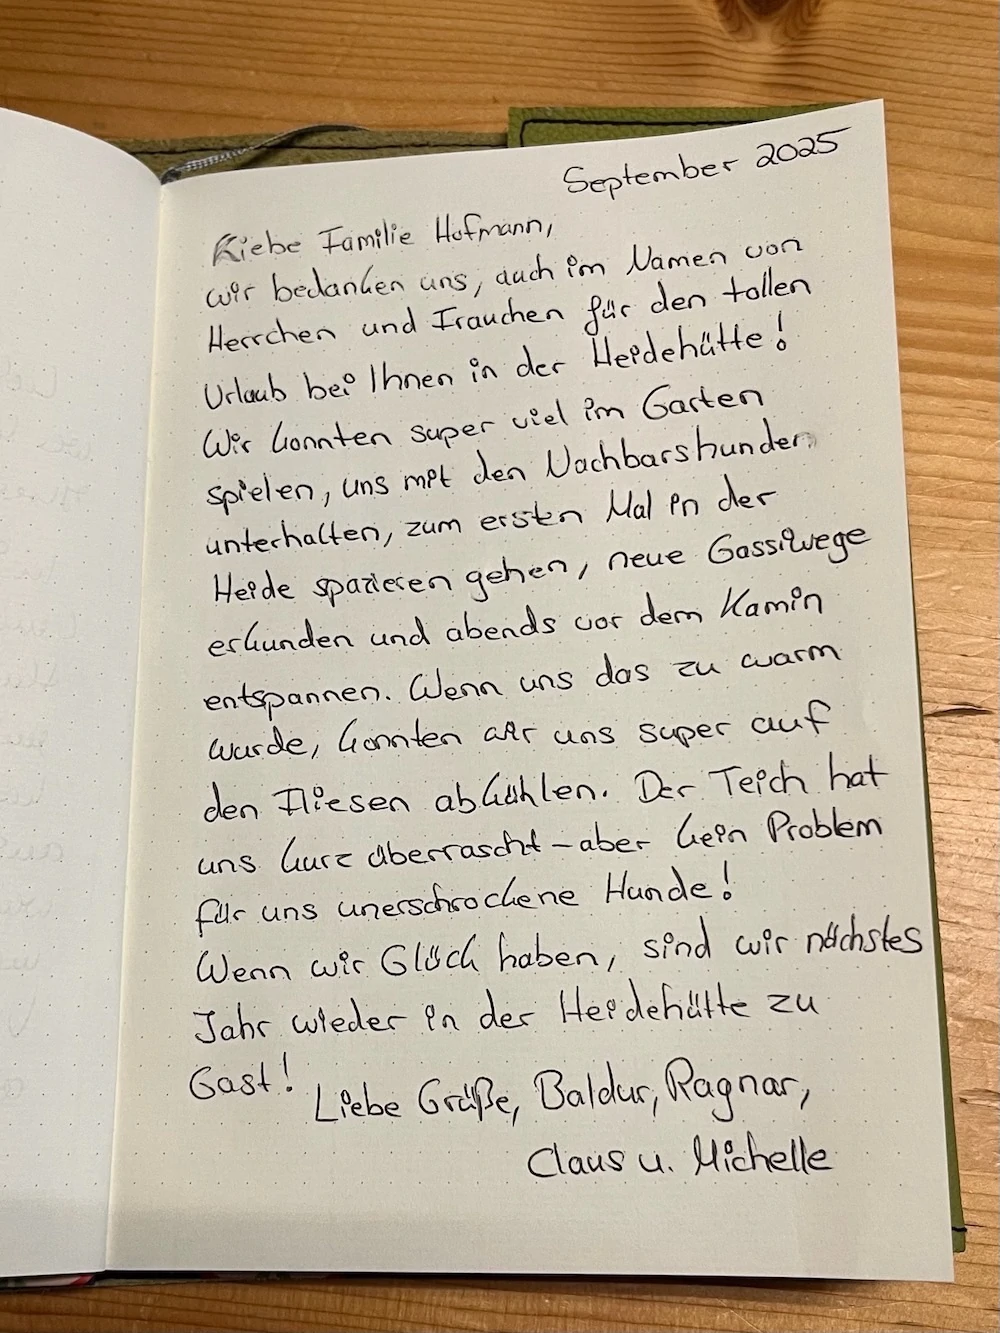 September 2025
Liebe Familie Hofmann,
wir bedanken uns, auch im Namen von
Herrchen und Frauchen für den tollen
Urlaub bei Ihnen in der Heidehütte!
Wir konnten super viel im Garten
spielen, uns mit den Nachbarshunden
unterhalten, zum ersten Mal in der
Heide spazieren gehen, neue Gassiwege
erkunden und abends vor dem Kamin
entspannen. Wenn uns das zu warm
wurde, konnten wir uns super auf
den Fliesen abkühlen. Der Teich hat
uns kurz überrascht – aber kein Problem
für uns unerschrockene Hunde!
Wenn wir Glück haben, sind wir nächstes
Jahr wieder in der Heidehütte zu
Gast!
Liebe Grüße, Baldur, Ragnar,
Claus u. Michelle